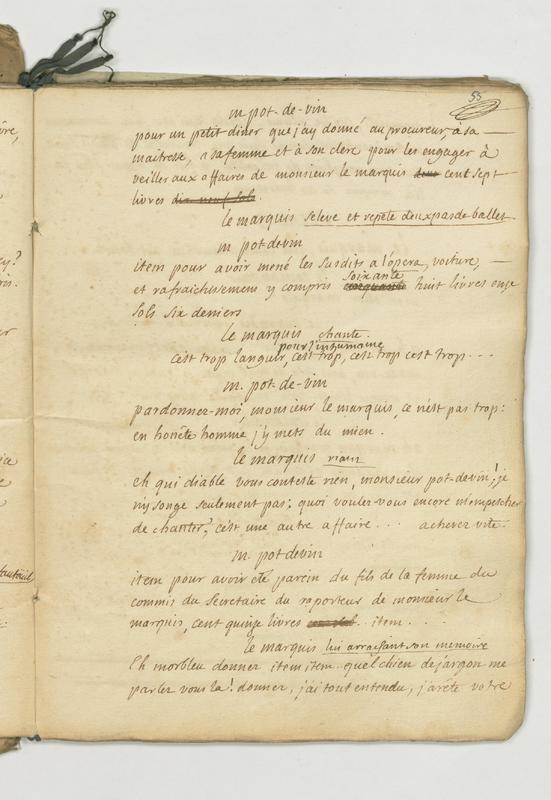 53
m. pot-de-vin
pour un petit diner que j'ay donné au procureur, a sa
maitresse, a sa femme et à son clerc pour les engager à
veiller aux affaires de monsieur le marquis cent sept
livres dix neuf sols.
le marquis seleve et repete deux pas de ballet
m. pot devin
item pour avoir mené les susdits a l'opera, voiture,
soixante
et rafraichissemens y compris cinquante huit livres onze
sols six deniers
le marquis chante.
pour l'inhumaine
c'est trop languir, c'est trop, c'est trop c'est trop...
m. pot-de-vin
pardonnez-moi, monsieur le marquis, ce n'est pas trop:
en honête homme j'y mets du mien.
le marquis riant
eh qui diable vous conteste rien, monsieur pot-devin! je
n'y songe seulement pas; quoi voulez-vous encore m'empescher
de chanter? c'est une autre affaire... achevez vite.
m. pot devin
item pour avoir eté parein du fils de la femme du
commis du Secretaire du raporteur de monsieur le
marquis, cent quinze livres item....
le marquis lui arrachant son memoire
Eh morbleu donner item item quel chien de jargon me
parlez vous la! donner, j'ai tout entendu, j'arête votre
fauteüil